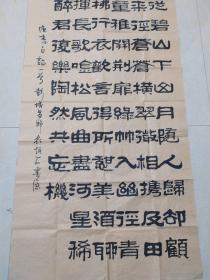 碧山下山月隨人歸卻顧
來徑蒼蒼橫翠微相攜及田
童稚開荊扉綠竹入幽徑青
拂行衣歡言得所憩美酒聊
揮長歌吟松風曲盡河星稀
醉君復樂陶然共忘機
李白詩一首